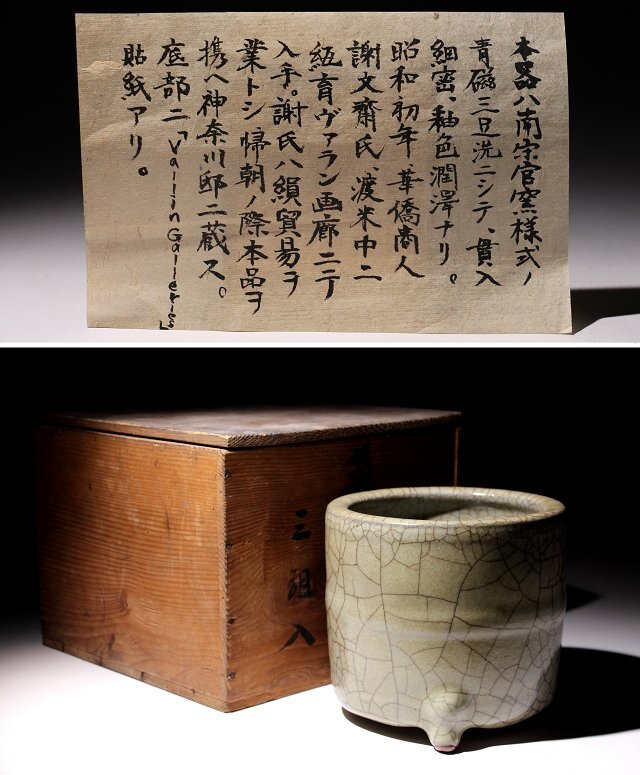 本器ハ南宋官窯様式ノ
青磁三足洗ニシテ、貫入
細密、釉色潤澤ナリ。
昭和初年 華僑商人
謝文齋氏、渡米中ニ
紐育ヴァラン画廊ニテ
入手。謝氏ハ絹貿易ヲ
業トシ 帰朝ノ際本品ヲ
携ヘ神奈川邸ニ蔵ス。
底部ニ「Vallin Galleries」
貼紙アリ。
三組入